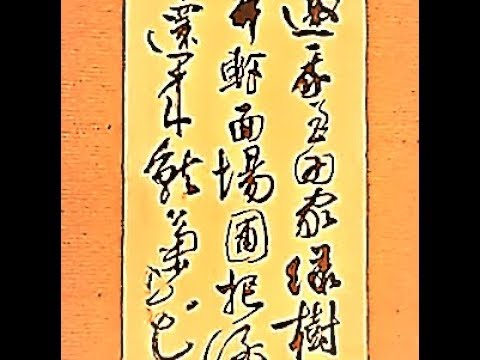 邀我至田家綠樹
軒面場圃把酒
還來就菊花